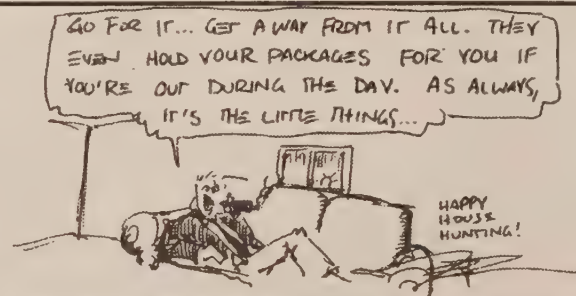 GO FOR IT... GET AWAY FROM IT ALL. THEY
EVEN HOLD YOUR PACKAGES FOR YOU IF
YOU'RE OUT DURING THE DAY. AS ALWAYS,
IT'S THE LITTLE THINGS...
HAPPY
HOUSE
HUNTING!